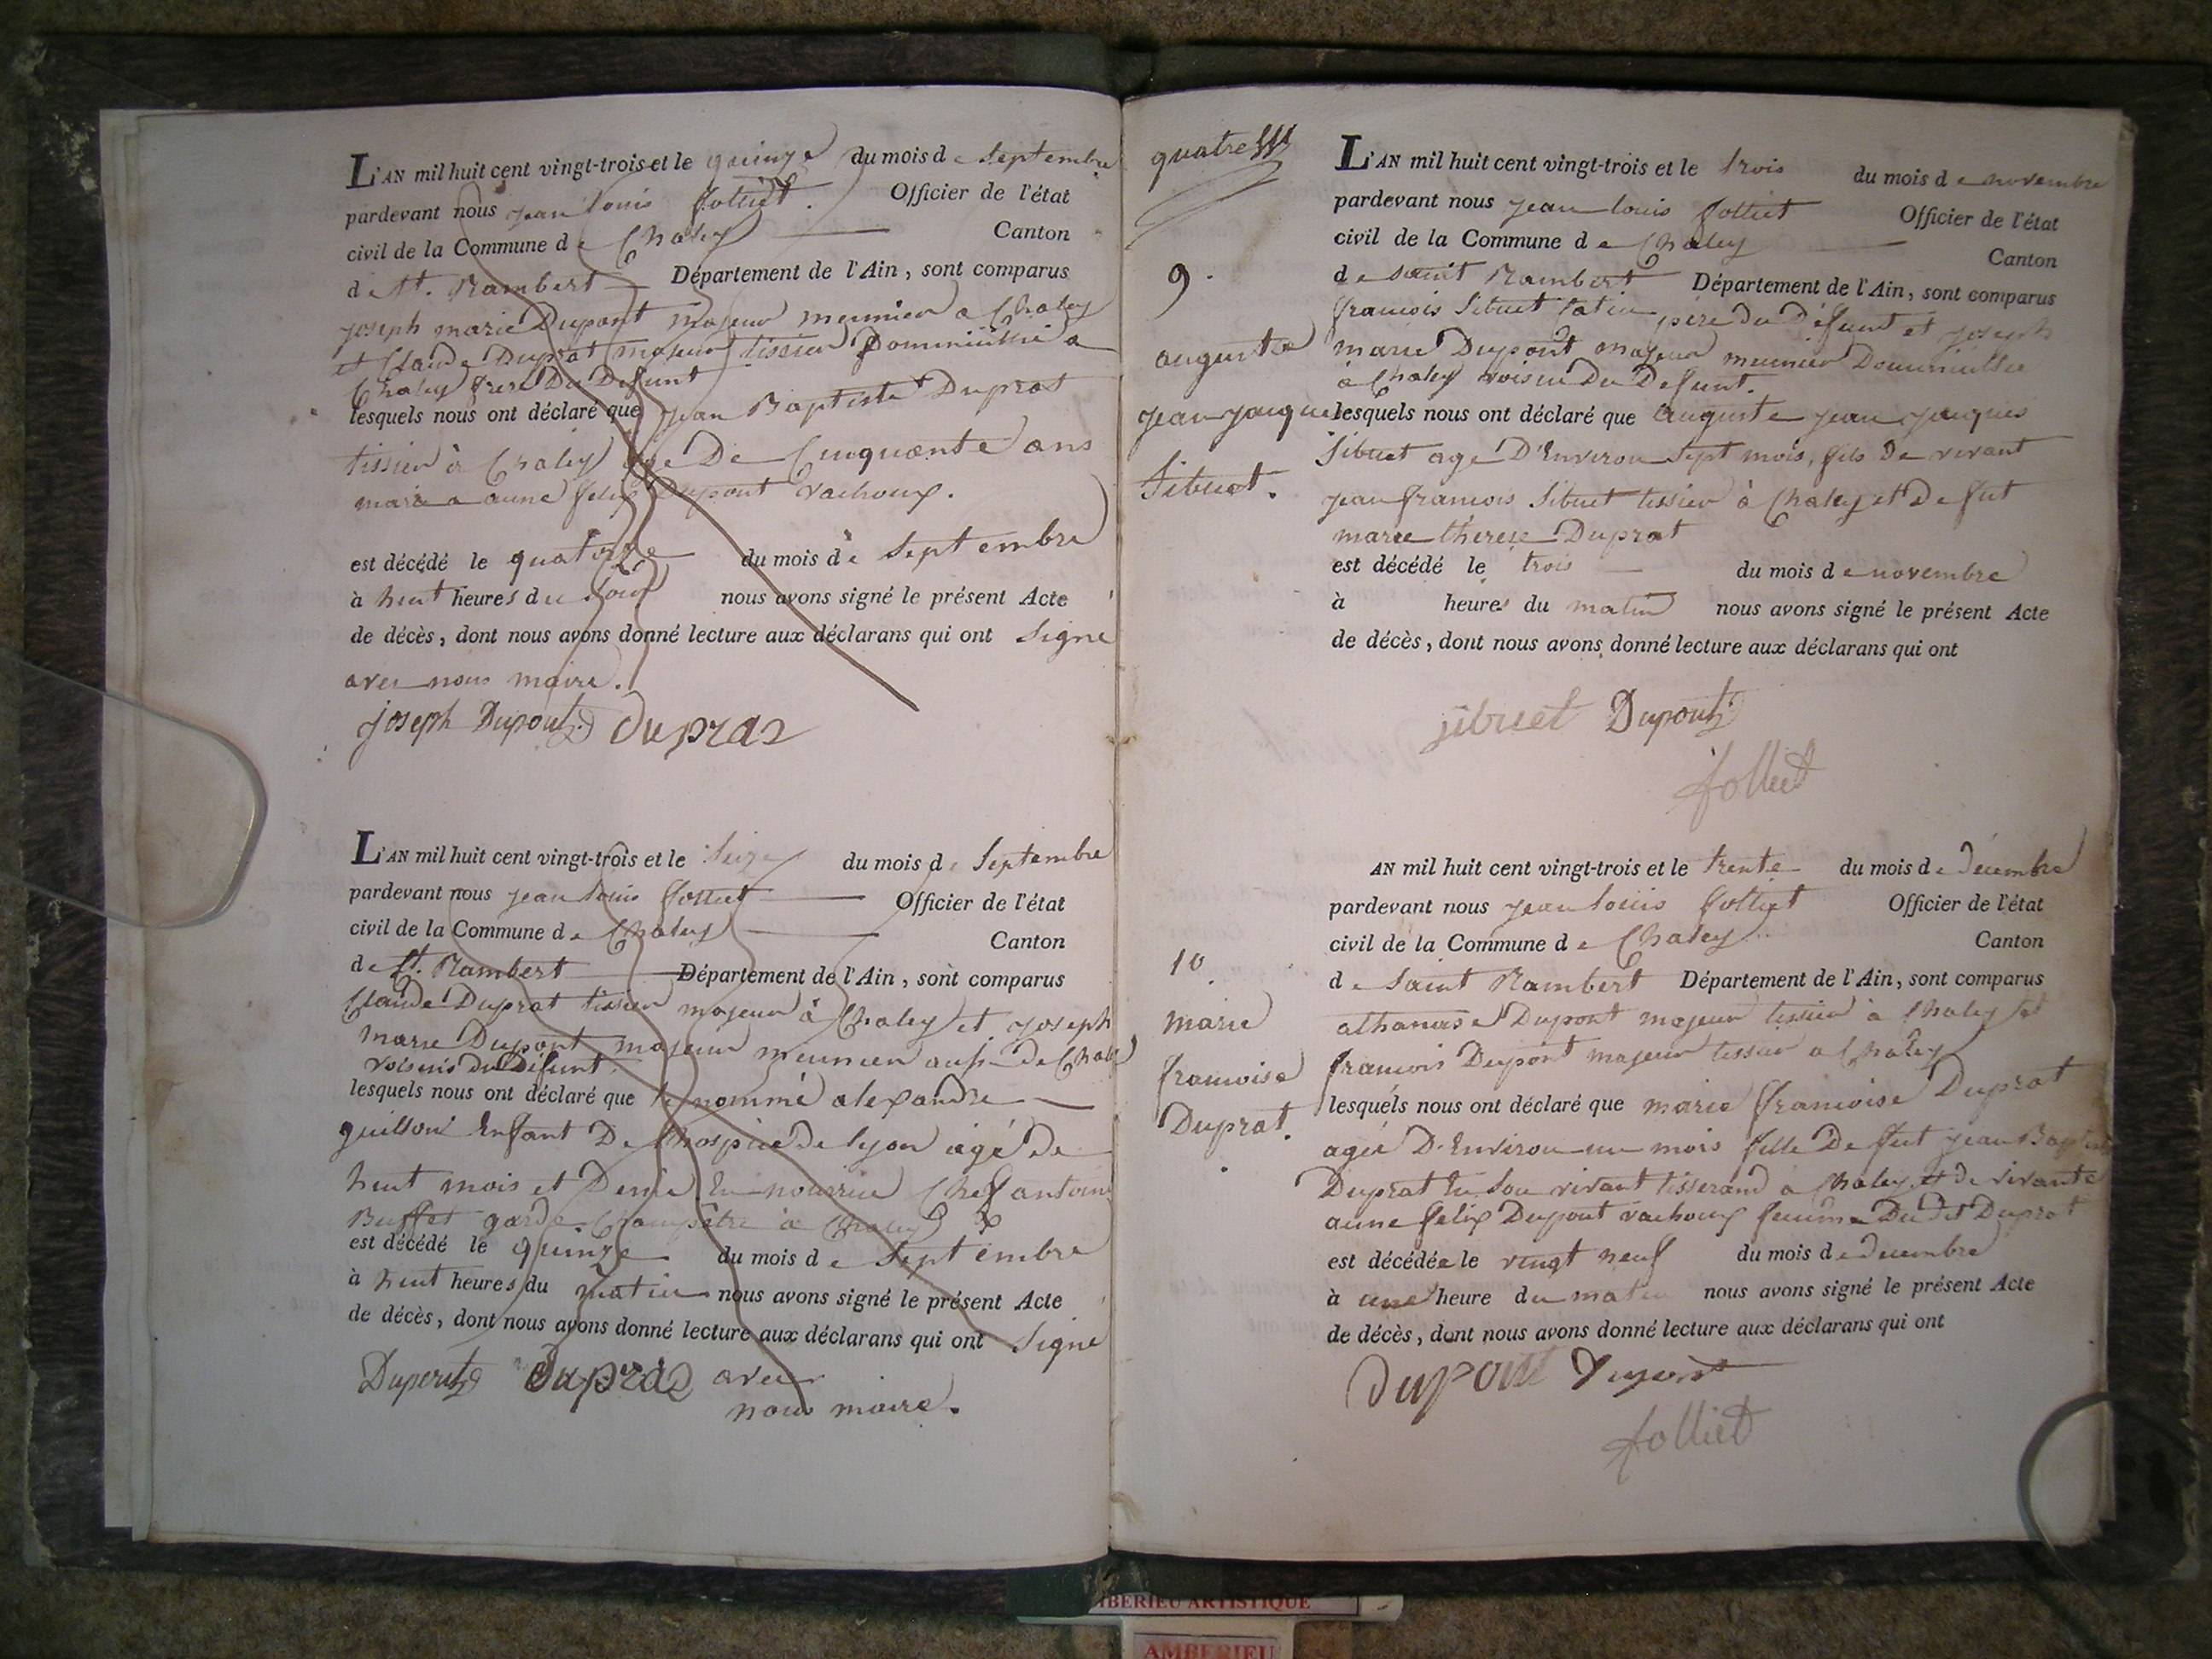 L'AN mil huit cent vingt-trois et le quinze du mois de Septembre
pardevant nous jean louis folliet. Officier de l'état
civil de la Commune de Chaley Canton
de St. Rambert Département de l'Ain, sont comparus
joseph marie Dupont majeur meunier a Chaley
et Claude Duprat majeur tissier Domicillié a
Chaley frere Du Defunt
lesquels nous ont déclaré que jean Baptiste Duprat
tissier à Chaley age De Cinquante ans
marie a anne felix Dupont vachoux.
est décédé le quatorze du mois de Septembre
à huit heures du soir nous avons signé le présent Acte
de décès, dont nous avons donné lecture aux déclarans qui ont Signé
avec nous maire.
joseph Dupont Dupraz
L'AN mil huit cent vingt-trois et le Seize du mois de Septembre
pardevant nous jean louis folliet Officier de l'état
civil de la Commune de Chaley Canton
de St. Rambert Département de l'Ain, sont comparus
Claude Duprat tissier majeur à Chaley et joseph
marie Dupont majeur meunier aussi de Chaley
voisins du Défunt.
lesquels nous ont déclaré que le nommé alexandre
guillon Enfant De l'hospice de lyon agé de
huit mois et Demi En nourrice Chez antoine
Buffet garde Champêtre à Chaley
est décédé le quinze du mois de Septembre
à huit heures du matin nous avons signé le présent Acte
de décès, dont nous avons donné lecture aux déclarans qui ont Signé
Dupont Dupraz avec
nous maire.
quatre
L'AN mil huit cent vingt-trois et le trois du mois de novembre
pardevant nous jean louis folliet Officier de l'état
civil de la Commune de Chaley Canton
9. de saint Rambert Département de l'Ain, sont comparus
francois Sibuet père du Défunt et joseph
auguste marie Dupont majeur meunier Domicillié
à Chaley voisin Du Defunt.
jean jaques lesquels nous ont déclaré que auguste jean jaques
Sibuet age D'Environ Sept mois, fils De vivant
Sibuet. jean francois Sibuet tissier à Chaley et De fut
marie thérese Duprat
est décédé le trois du mois de novembre
à heures du matin nous avons signé le présent Acte
de décès, dont nous avons donné lecture aux déclarans qui ont
sibuet Dupont
folliet
AN mil huit cent vingt-trois et le trente du mois de Décembre
pardevant nous jean louis folliet Officier de l'état
civil de la Commune de Chaley Canton
10. de Saint Rambert Département de l'Ain, sont comparus
marie athanase Dupont majeur tissier à Chaley et
francoise francois Dupont majeur tissier a Chaley
lesquels nous ont déclaré que marie francoise Duprat
Duprat. agée D'Environ un mois fille De fut jean Baptiste
Duprat En Son vivant tisserand a Chaley et de vivante
anne felix Dupont vachoux femme Du dit Duprat
est décédée le vingt neuf du mois de decembre
à une heure du matin nous avons signé le présent Acte
de décès, dont nous avons donné lecture aux déclarans qui ont
Dupont Dupont
folliet
AMBERIEU ARTISTIQUE
AMBERIEU